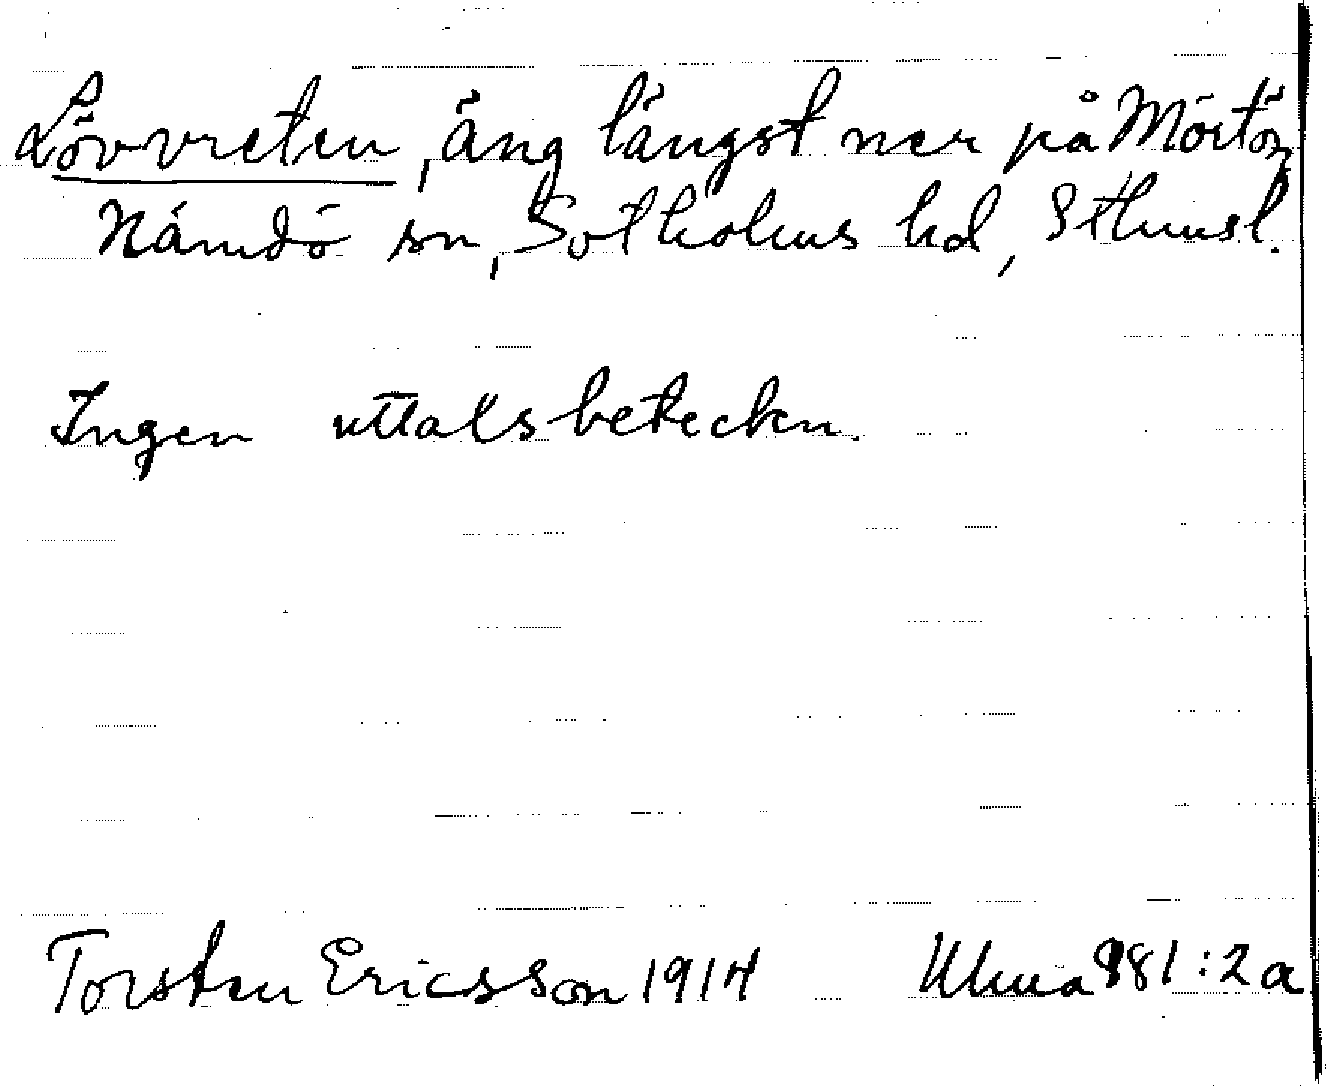 Lövvreten, äng längst ner på Mörtö,
Nämdö sn, Sotholms hd, Sthmsl.
Ingen uttalsbeteckn.
Torsten Ericsson 1914 Ulma 981:2a